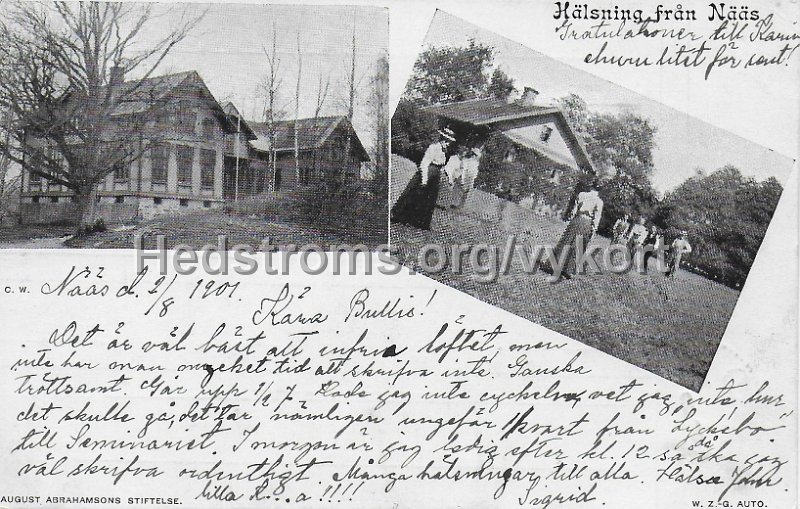 Hälsning från Nääs
Gratulationer till Karin
ehuru litet för sent!
Hedstroms.org/vykort
C. W.
Nääs d. 2/8 1901.
Kära Bullis!
Det är väl bäst att infria löftet, men
inte har man mycket tid att skrifva inte. Ganska
tröttsamt. Går upp 1/2 7. Hade jag inte cyckeln, vet jag inte hur
det skulle gå, det tar nämligen ungefär 1 kvart från "Lyckebo"
till Seminariet. I morgon är jag ledig efter kl. 12 så då ska jag
väl skrifva ordentligt. Många hälsningar till alla. Hälsa John.
lilla K...a!!!! Sigrid.
AUGUST ABRAHAMSONS STIFTELSE.
W. Z.-G. AUTO.